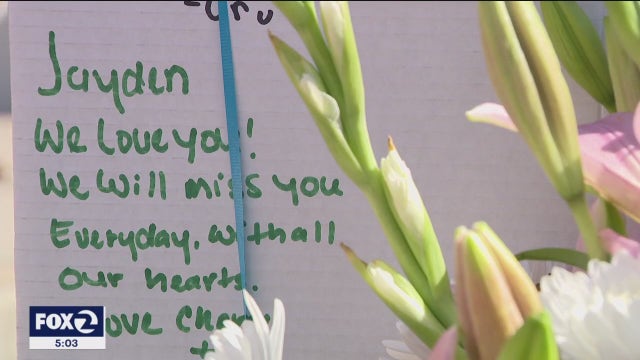 Jayden
We Love you!
We will miss you
Everyday, with all
our hearts.
FOX 2
5:03